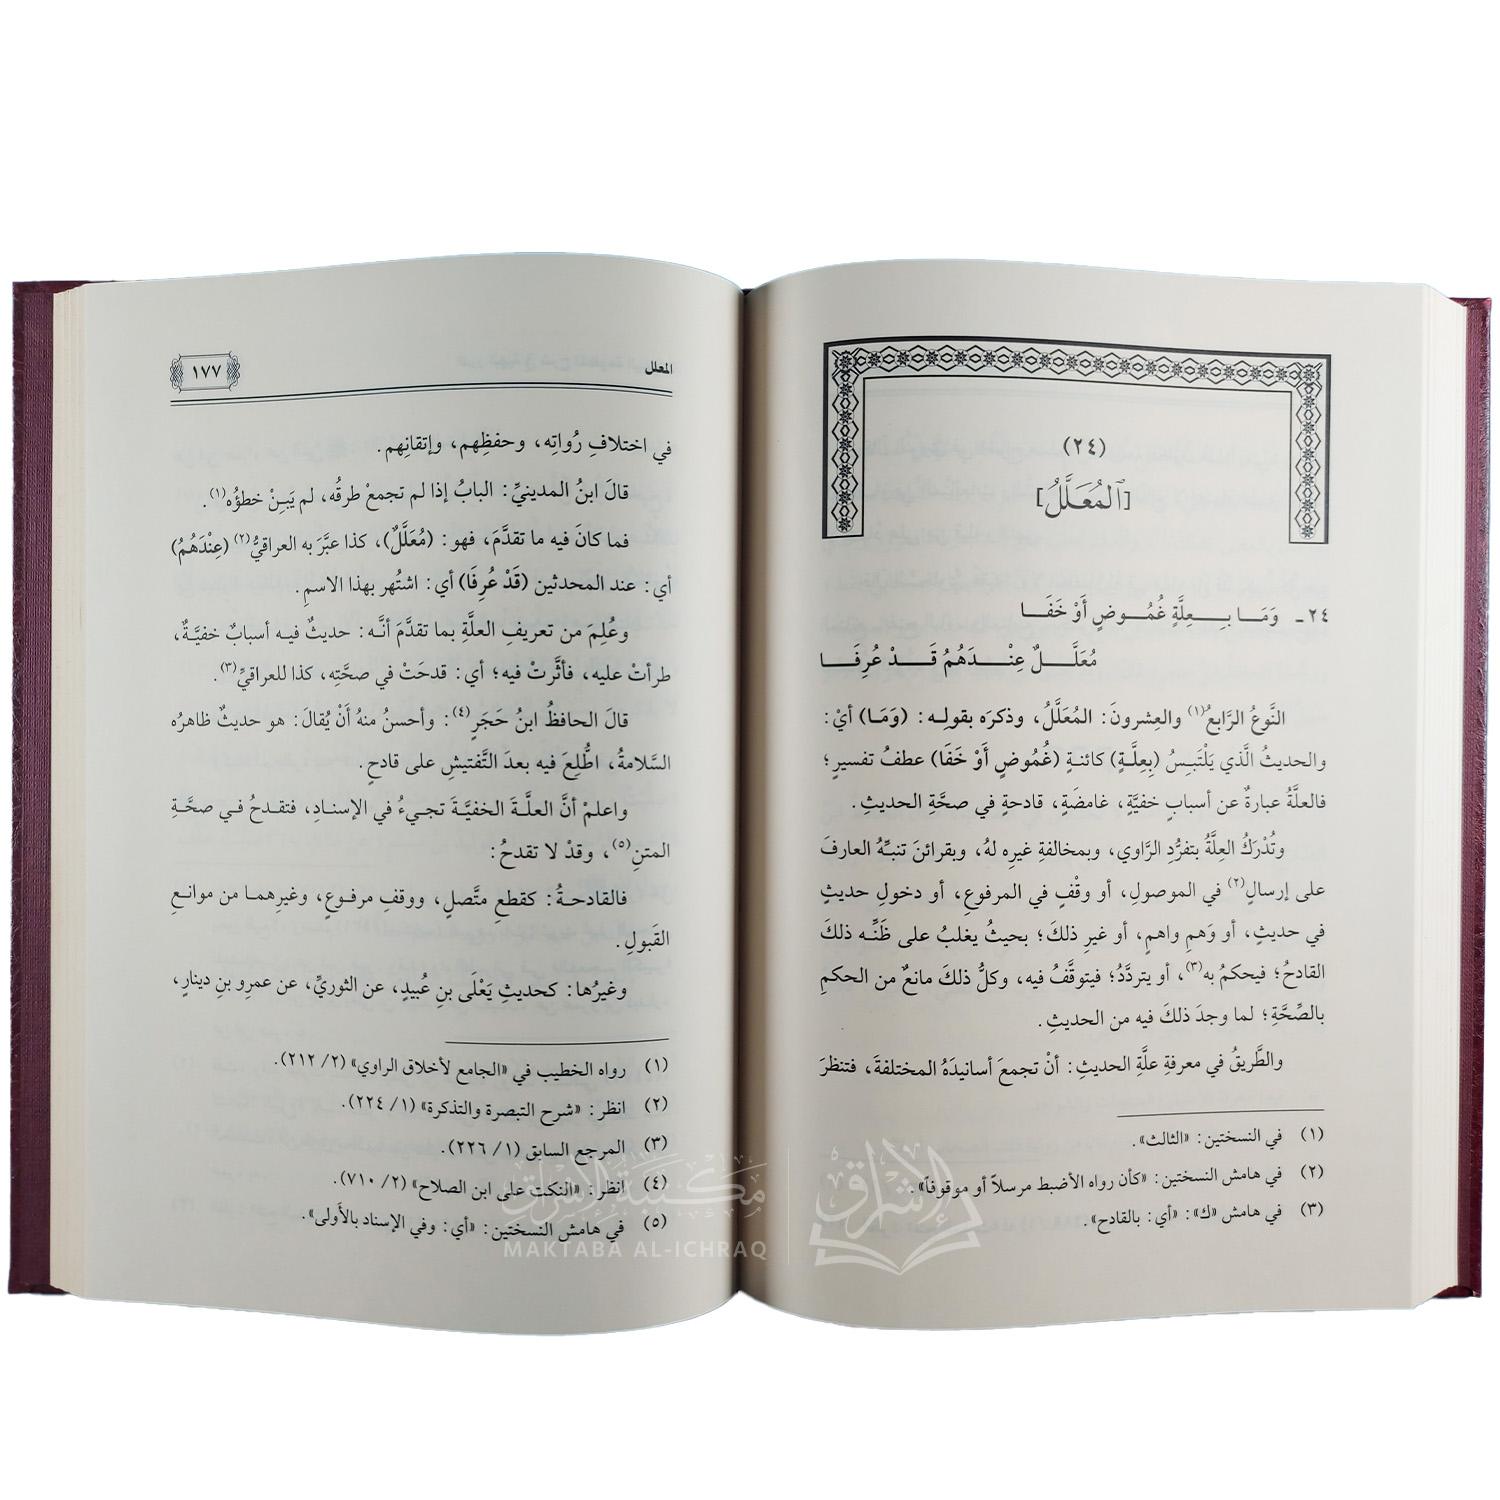 (٢٤)
[ٱلْمُعَلَّلُ]
٢٤ـ وَمَـا بِـعِلَّةٍ غُمُوضٍ أَوْ خَفَـا
مُعَلَّـلٌ عِنْـدَهُمُ قَـدْ عُرِفَـا
النَّوعُ الرَّابعُ(١) والعِشرونَ: المُعَلَّلُ، وذكرَه بقولِـه: (وَمَـا) أيْ:
والحديثُ الَّذي يَلْتَبِسُ (بِعِلَّةٍ) كائنـةٍ (غُمُوضٍ أَوْ خَفَا) عطفُ تفسيرٍ؛
فالعلَّةُ عبارةٌ عن أسبابٍ خفيَّةٍ، غامضَةٍ، قادحةٍ في صحَّةِ الحديثِ.
وتُدْرَكُ العِلَّةُ بتفرُّدِ الرَّاوي، وبمخالفةِ غيرِه لهُ، وبقرائنَ تنبِّهُ العارفَ
على إرسالٍ(٢) في الموصولِ، أو وقْفٍ في المرفوعِ، أو دخولِ حديثٍ
في حديثٍ، أو وَهمِ واهمٍ، أو غيرِ ذلكَ؛ بحيثُ يغلبُ على ظَنِّـه ذلكَ
القادحُ؛ فيحكمُ به(٣)، أو يتردَّدُ؛ فيتوقَّفُ فيه، وكلُّ ذلكَ مانعٌ من الحكمِ
بالصِّحَّةِ؛ لما وجدَ ذلكَ فيه من الحديثِ.
والطَّريقُ في معرفةِ علَّةِ الحديثِ: أنْ تجمعَ أسانيدَهُ المختلفةَ، فتنظرَ
(١) في النسختين: «الثالث».
(٢) في هامش النسختين: «كأن رواه الأضبط مرسلاً أو موقوفاً».
(٣) في هامش «ك»: «أي: بالقادح».
المعلل
١٧٧
في اختلافِ رُواتِه، وحفظِهم، وإتقانِهم.
قالَ ابنُ المدينيِّ: البابُ إذا لم تجمعْ طرقُه، لم يَبِنْ خطؤُه(١).
فما كانَ فيه ما تقدَّمَ، فهو: (مُعَلَّلٌ)، كذا عبَّرَ به العراقيُّ(٢) (عِنْدَهُمُ)
أي: عند المحدثين (قَدْ عُرِفَا) أي: اشتُهر بهذا الاسمِ.
وعُلِمَ من تعريفِ العلَّةِ بما تقدَّمَ أنَّه: حديثٌ فيه أسبابٌ خفيَّةٌ،
طرأتْ عليه، فأثَّرتْ فيه؛ أي: قدحَتْ في صحَّتِه، كذا للعراقيِّ(٣).
قالَ الحافظُ ابنُ حَجَرٍ(٤): وأحسنُ منهُ أنْ يُقالَ: هو حديثٌ ظاهرُه
السَّلامةُ، اطُّلِعَ فيه بعدَ التَّفتيشِ على قادحٍ.
واعلمْ أنَّ العلَّـةَ الخفيَّةَ تجيءُ في الإسنادِ، فتقدحُ في صحَّةِ
المتنِ(٥)، وقدْ لا تقدحُ:
فالقادحـةُ: كقطعِ متَّصلٍ، ووقفِ مرفوعٍ، وغيرِهمـا من موانـعِ
القَبولِ.
وغيرُها: كحديثِ يَعْلَى بنِ عُبيدٍ، عن الثوريِّ، عن عمرِو بنِ دينارٍ،
(١) رواه الخطيب في «الجامع لأخلاق الراوي» (٢/ ٢١٢).
(٢) انظر: «شرح التبصرة والتذكرة» (١/ ٢٢٤).
(٣) المرجع السابق (١/ ٢٢٦).
(٤) انظر: «النكت على ابن الصلاح» (٢/ ٧١٠).
(٥) في هامش النسختين: «أي: وفي الإسناد بالأولى».
مكتبة الإشراق
MAKTABA AL-ICHRAQ
الإشراق